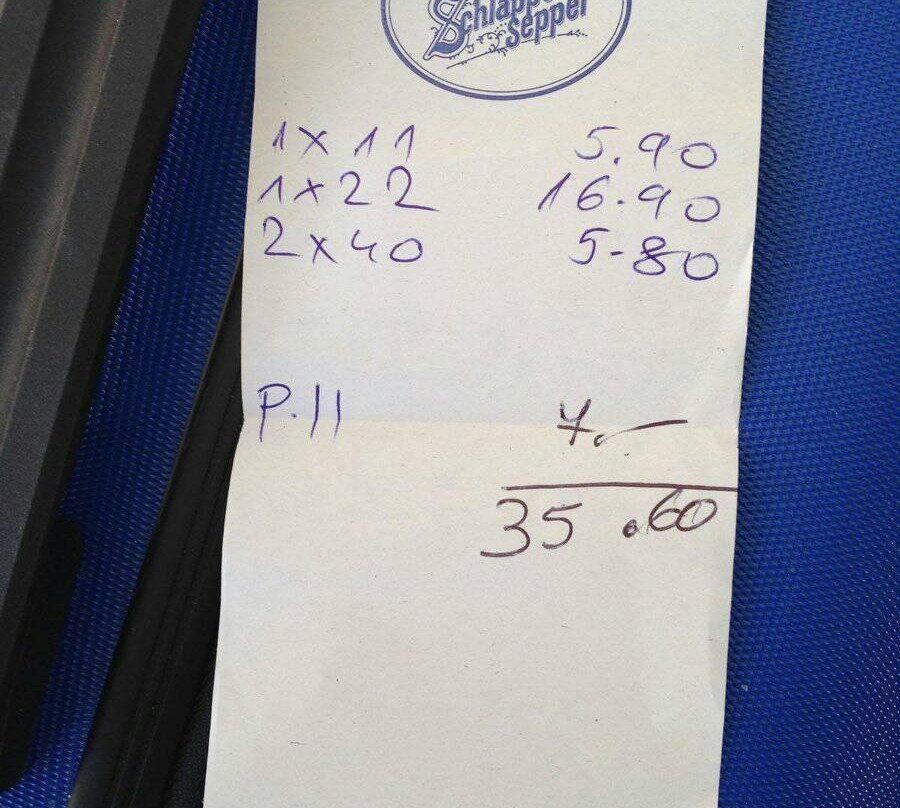 Schlappe
Seppel
1 x 11 5.90
1 x 22 16.90
2 x 40 5-80
P.11 7.—
35.60